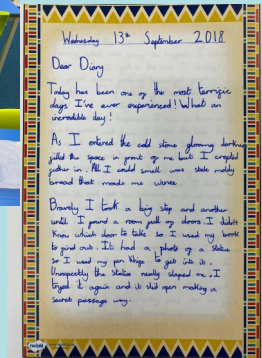 Wednesday 13th September 2018
Dear Diary
Today has been one of the most terrific
days I've ever experienced! What an
incredible day!
As I entered the cold stone gloomy darkness
filled the space in front of me but I crepted
futher in. All I could smell was stale moldy
bread that made me wince.
Bravely I took a big step and another
until I found a room full of doors. I didn't
know which door to take so I used my book
to find out. It had a photo of a statue
so I used my pen knife to get into it.
Unexpectly the statue nearly slaped me. I
tryed it again and it slid open making a
secret passage way.
twinkl